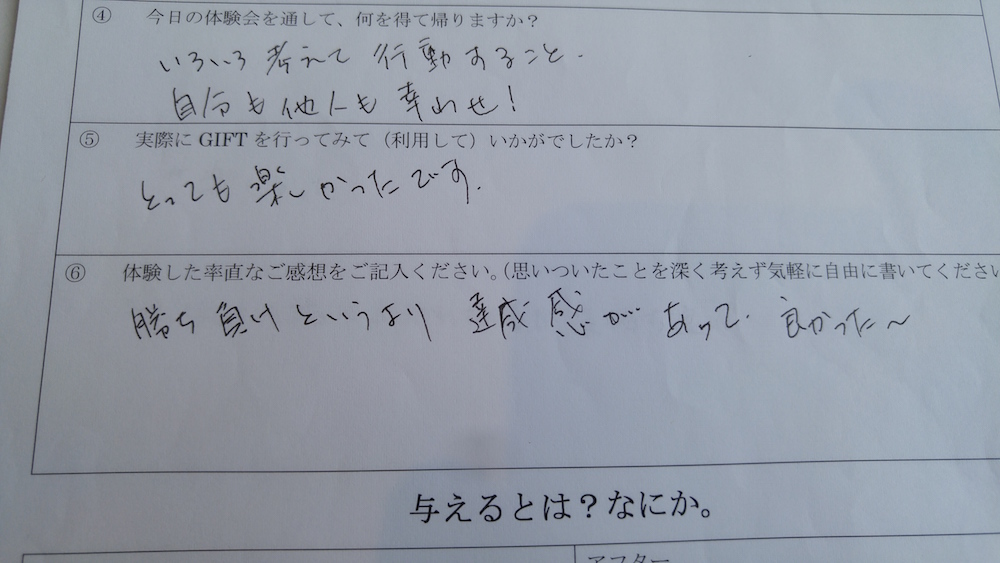 ④ 今日の体験会を通して、何を得て帰りますか？
いろいろ考えて行動すること.
自分も他人も幸わせ!
⑤ 実際に GIFT を行ってみて（利用して）いかがでしたか？
とっても楽しかったです.
⑥ 体験した率直なご感想をご記入ください。（思いついたことを深く考えず気軽に自由に書いてくださ
勝ち負けというより 達成感が あって. 良かった〜
与えるとは？なにか。
アフター